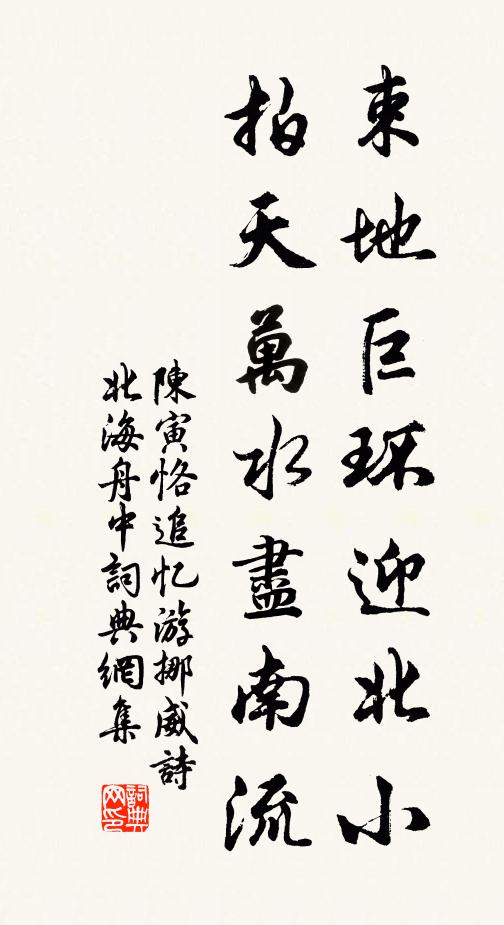 束地巨环迎北小
拍天萬水盡南流
陳寅恪追忆游挪威詩
北海舟中詞典網集
詞典网印